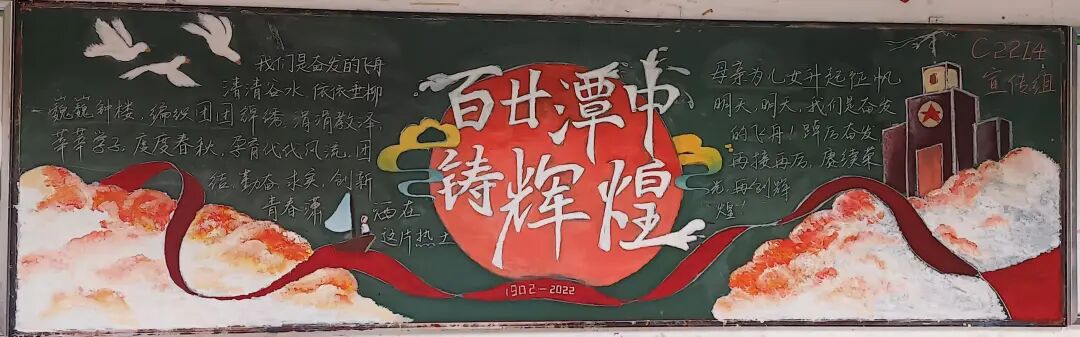 我们是奋发的飞舟
清清谷水,依依垂柳
巍巍钟楼,编织团团锦绣,涓涓教泽,
莘莘学子,度度春秋,孕育代代风流.团
结,勤奋,求实,创新
青春潇洒在
这片热土
百廿潭中
铸辉煌
1902-2022
母亲为儿女升起征帆
明天,明天,我们是奋发
的飞舟!踔厉奋发
再接再厉,赓续荣
光再创辉
煌!
C2214
宣传组